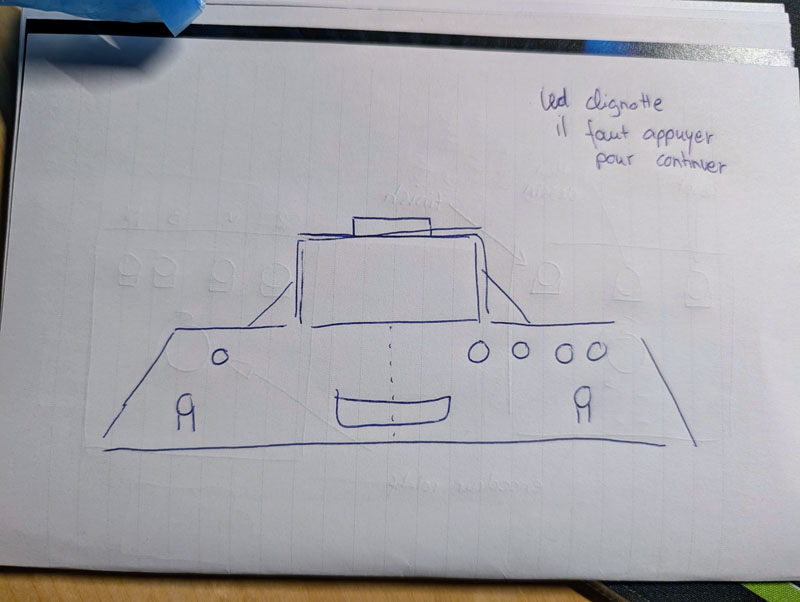 led clignotte
il faut appuyer
pour continuer